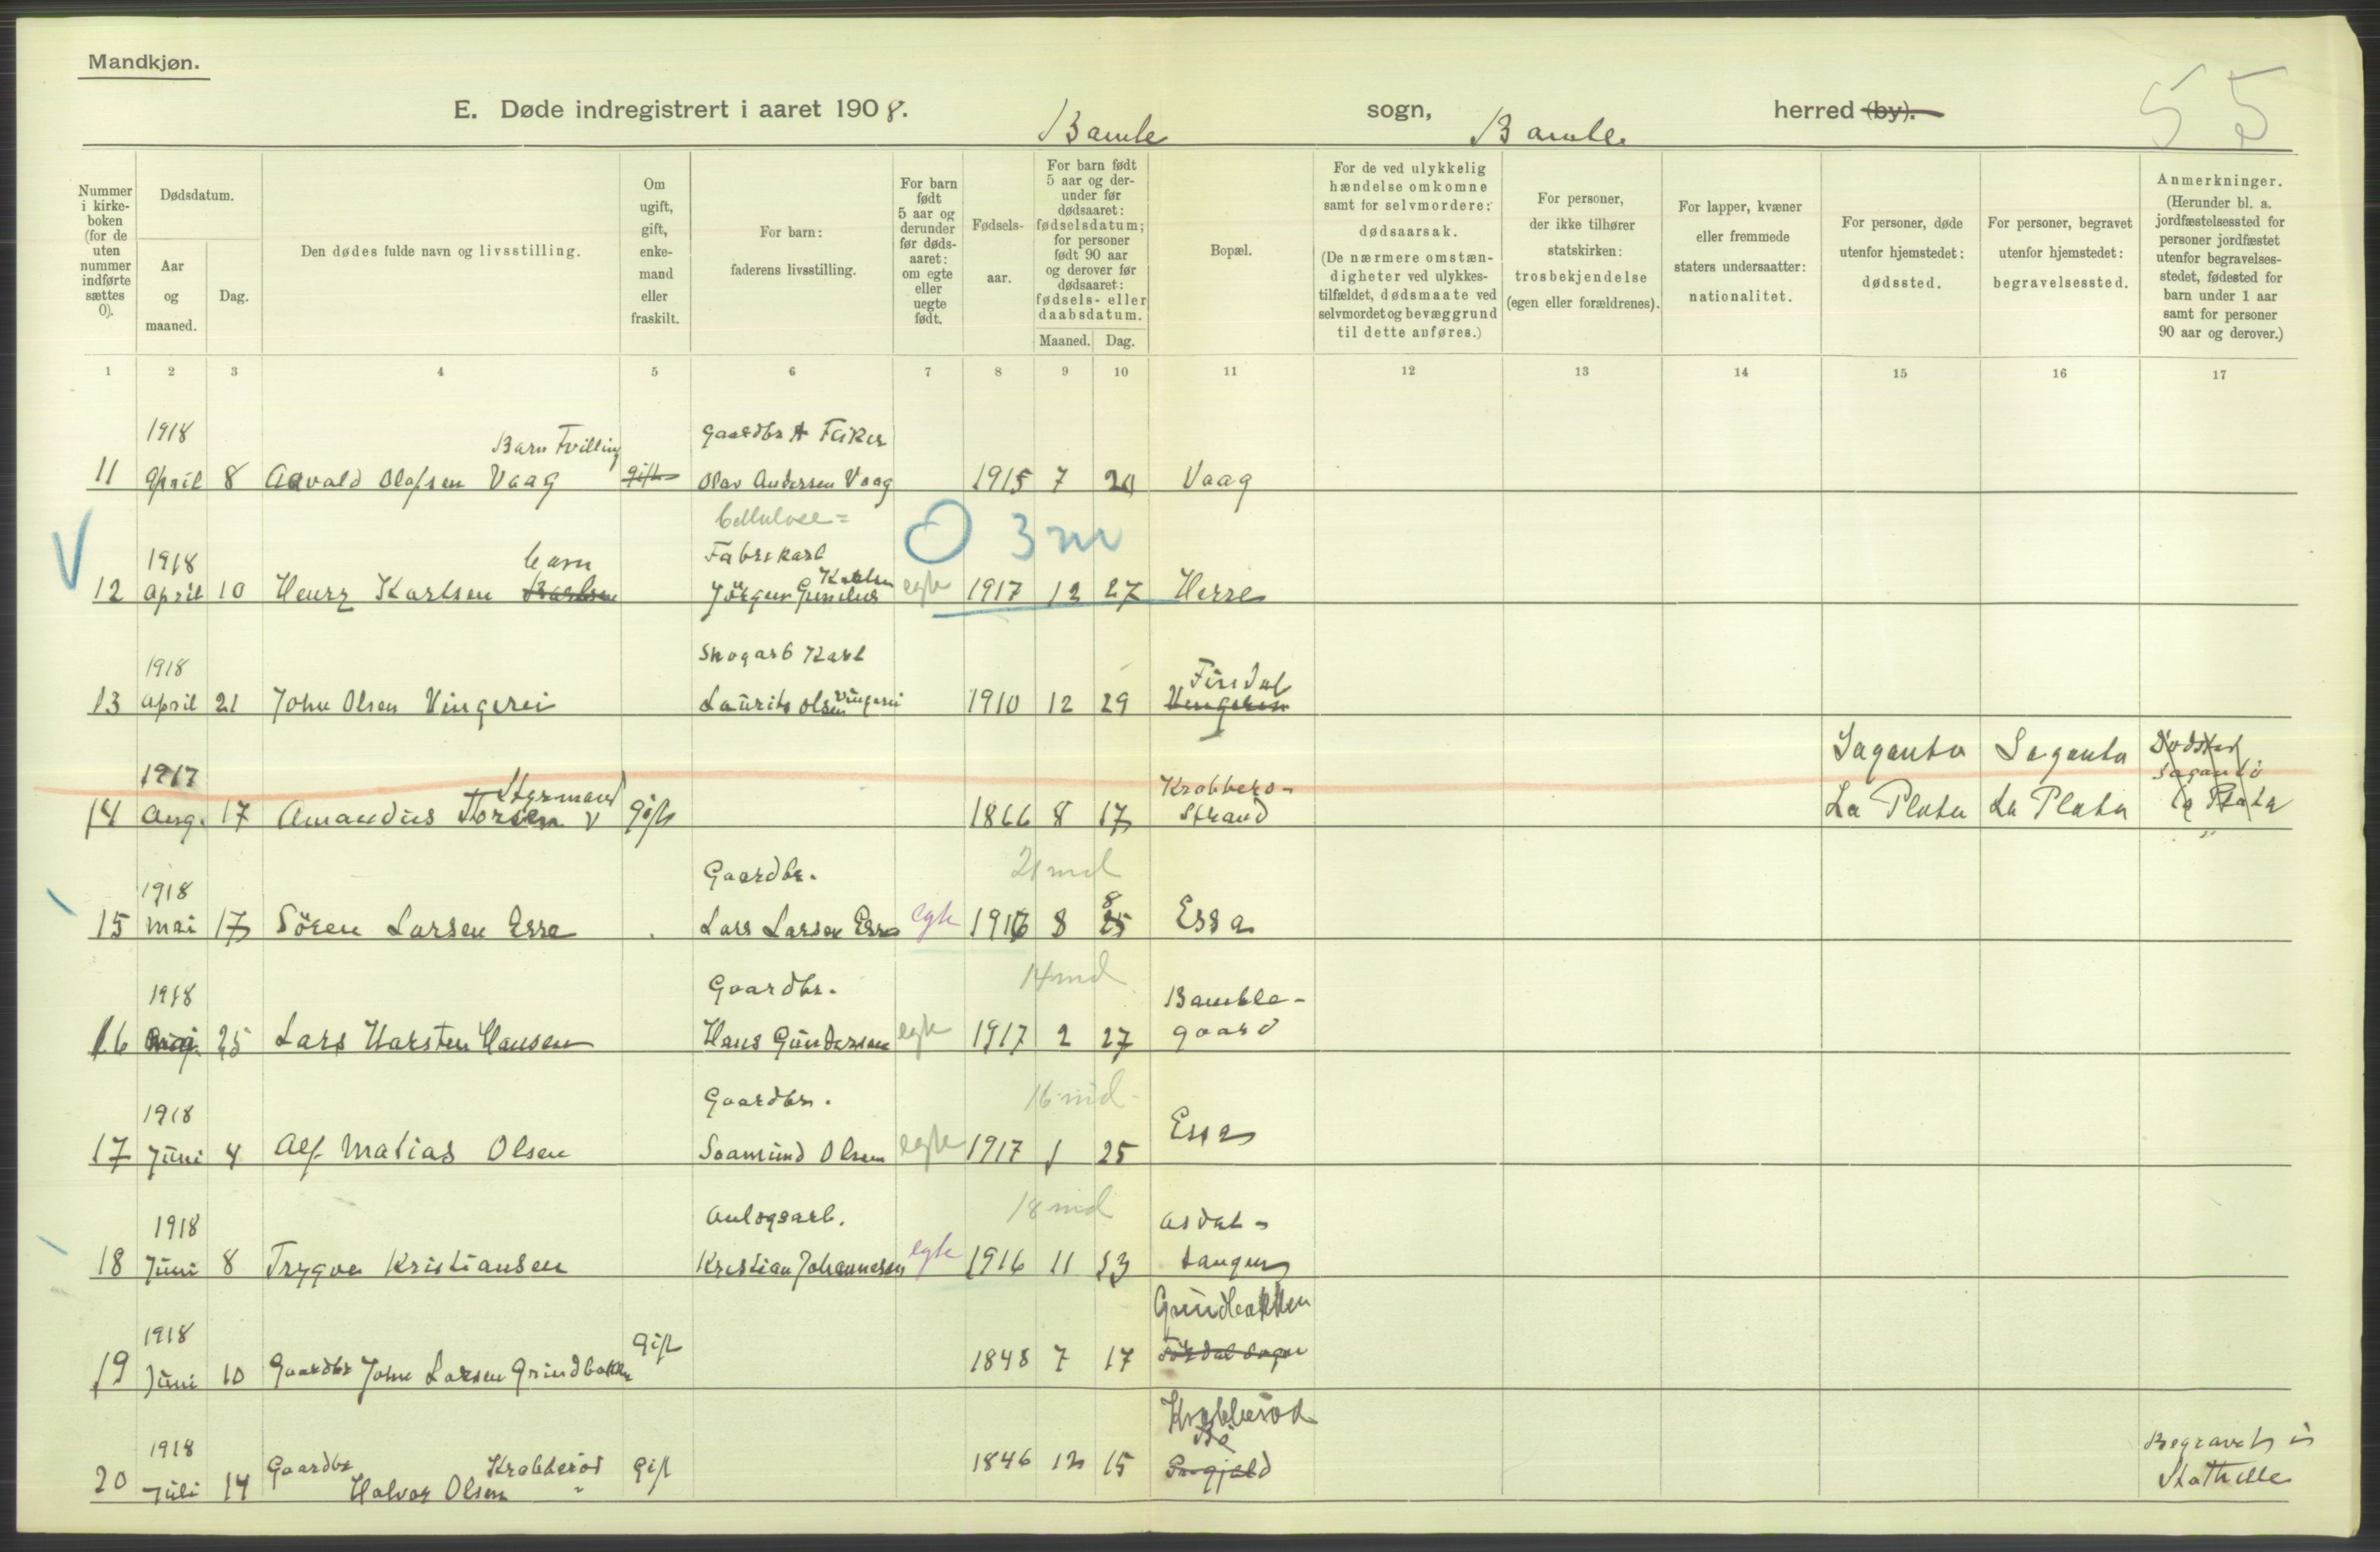 Mandkjøn.
55
E. Døde indregistrert i aaret 1908. Bamle sogn, Bamble herred (by).
Nummer i kirke-boken (for de uten nummer indførte sættes 0).
Dødsdatum.
Aar og maaned.
Dag.
Den dødes fulde navn og livsstilling.
Om ugift, gift, enke-mand eller fraskilt.
For barn: faderens livsstilling.
For barn født 5 aar og derunder før døds-aaret: om egte eller uegte født.
Fødsels-aar.
For barn født 5 aar og der-under før dødsaaret: fødselsdatum; for personer født 90 aar og derover før dødsaaret: fødsels- eller daabsdatum.
Maaned. Dag.
Bopæl.
For de ved ulykkelig hændelse omkomne samt for selvmordere: dødsaarsak.
(De nærmere omstæn-digheter ved ulykkes-tilfældet, dødsmaate ved selvmordet og bevæggrund til dette anføres.)
For personer, der ikke tilhører statskirken: trosbekjendelse (egen eller forældrenes).
For lapper, kvæner eller fremmede staters undersaatter: nationalitet.
For personer, døde utenfor hjemstedet: dødssted.
For personer, begravet utenfor hjemstedet: begravelsessted.
Anmerkninger.
(Herunder bl. a. jordfæstelsessted for personer jordfæstet utenfor begravelses-stedet, fødested for barn under 1 aar samt for personer 90 aar og derover.)
1 2 3 4 5 6 7 8 9 10 11 12 13 14 15 16 17
1918 Barn Tvilling Gaardbr & Fisker
11 April 8 Aavald Olafsen Vaag gift Olav Andersen Vaag 1915 7 20 Vaag
Cellulose=
1918 barn Fabrikarb 3 m
V 12 April 10 Henry Karlsen Karlsen Jörgen Gundus Karlsen egte 1917 12 27 Herre
1918 Skogarb Karl Findal
13 April 21 John Olsen Vingerei Laurits Olsen Vingerei 1910 12 29
Saganta Saganta Dødsted
1917 Styrmand Krabbero- Saganta
14 Aug. 17 Amandus Torsen V gift 1866 8 17 Strand La Plata La Plata La Plata
1918 Gaardbr. 21 md
15 Mai 17 Sören Larsen Esse Lars Larsen Esse egte 1916 8 25 8 Essa
1918 Gaardbr. 14 md Bamble-
16 Mai 25 Lars Karsten Hansen Hans Gundersen egte 1917 2 27 gaard
1918 Gaardbr. 16 md
17 Juni 4 Alf Matias Olsen Saamund Olsen egte 1917 1 25 Essa
1918 Anlogsarb. 18 md Asdal-
18 Juni 8 Trygve Kristiansen Kristian Johannesen egte 1916 11 13 tangen
Grindbakken
1918 Gift
19 Juni 10 Gaardbr John Larsen Grindbakke 1848 7 17
Krabberöd
1918 Gaardbr Krabberöd Begravet i
20 Juli 14 Halvor Olsen " Gift 1846 12 15 Stathelle